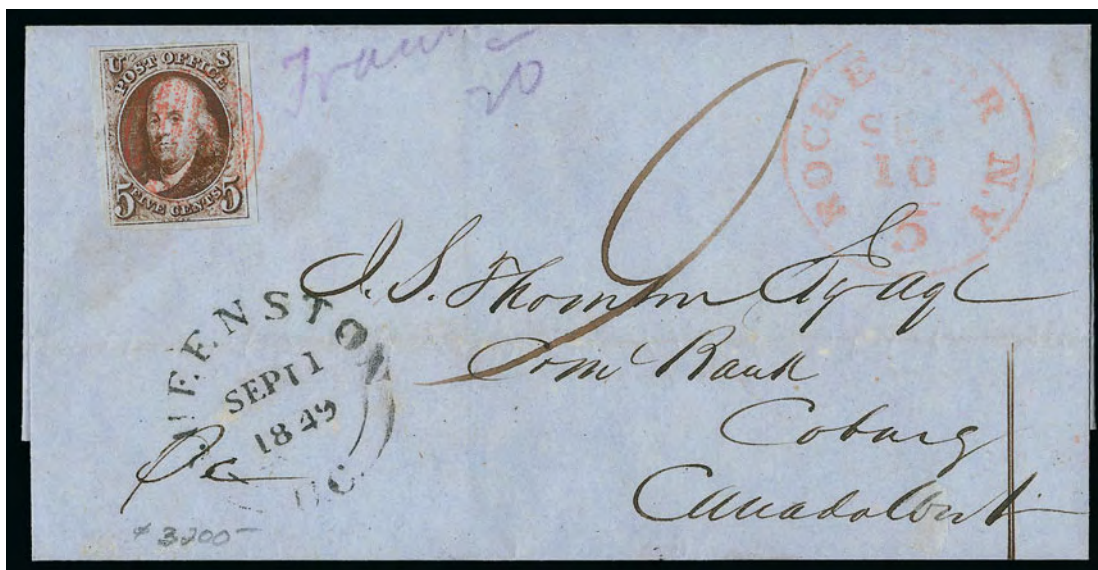 U S
POST OFFICE
5 FIVE CENTS 5
20
ROCHESTER N.Y
SEP
10
5
9
J. S. Thomson Esq Agt
Coml Bank
Coburg
Canada West
QUEENSTON
SEPT 11
1849
U.C.
Pd
3200-